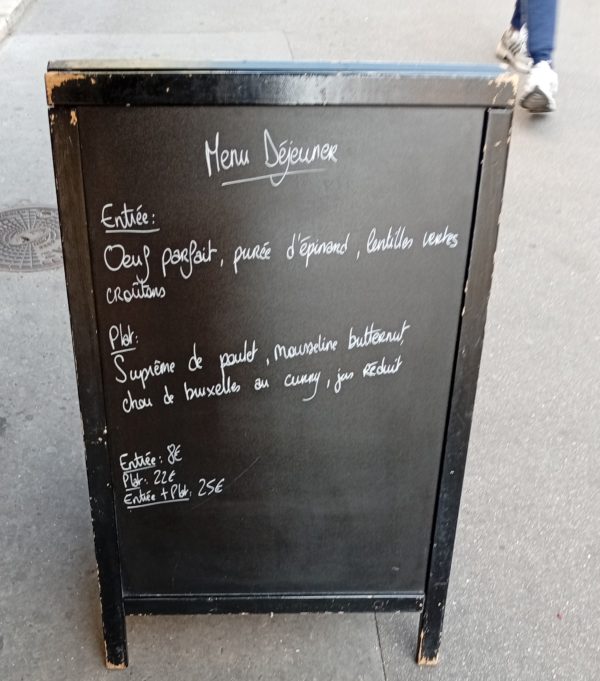 Menu Déjeuner
Entrée:
Oeuf parfait, purée d'épinand, lentilles vertes
croûtons
Plat:
Suprême de poulet, mousseline butternut,
chou de bruxelles au curry, jus réduit
Entrée: 8€
Plat: 22€
Entrée + Plat: 25€